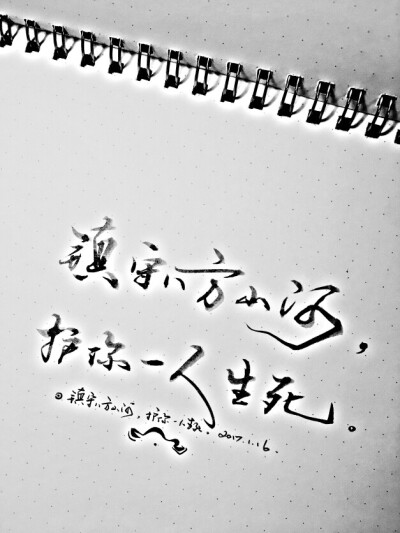 镇守八方山河，
护你一人生死。
镇守八方山河，护你一人生死。2017.1.16.